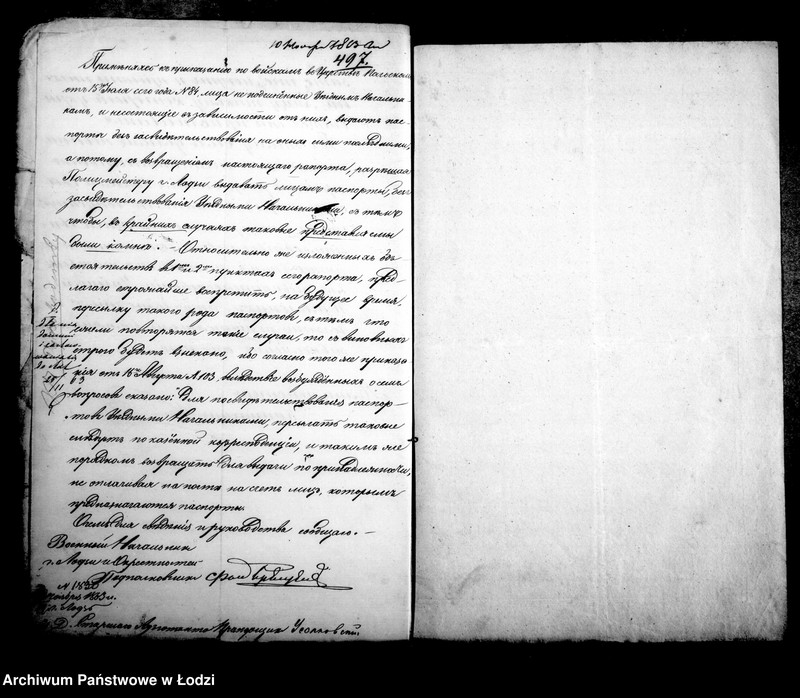 10 Ноября 1863 года
497.
Примѣняясь къ приказанію по войскамъ въ Царствѣ Польскомъ
отъ 15го Іюля сего года № 84, лица не подчинённые Уѣзднымъ Начальни-
камъ, и несостоящіе въ зависимости отъ нихъ, выдаютъ пас-
порты безъ засвидѣтельствованія на оныхъ сими послѣдними,
а потому, съ возвращеніемъ настоящаго рапорта, разрѣшаю
Полицмейстеру г. Лодзи выдавать лицамъ паспорты, безъ
засвидѣтельствованія Уѣздными Начальниками, съ тѣмъ
чтобы, въ крайнихъ случаяхъ таковые представляемы
были ко мнѣ. – Относительно же изложенныхъ об-
стоятельствъ въ 1мъ и 2мъ пунктахъ сего рапорта, пред-
лагаю строжайше воспретить, на будущее время,
присылку такого рода паспортовъ, съ тѣмъ что
если повторятся такіе случаи, то съ виновныхъ
строго будетъ взыскано, ибо согласно того же приказа-
нія отъ 16го Августа № 103, вслѣдствіе возбуждённыхъ о семъ
вопросовъ сказано: Для посвидѣтельствованія паспор-
товъ Уѣздными Начальниками, пересылать таковые
слѣдуетъ по казённой корреспонденціи, и такимъ же
порядкомъ возвращать для выдачи по принадлежности,
не оплачивая на почтѣ на счетъ лицъ, которымъ
предназначаются паспорты.
О чемъ для свѣдѣнія и руководства сообщаю. –
Военный Начальникъ
г. Лодзи и Окрестностей
Подполковникъ фонъ
№ 1838
Ноября 1863 г.
г. Лодзь
И. Д. Старшаго Адъютанта Прапорщикъ
Archiwum Państwowe w Łodzi